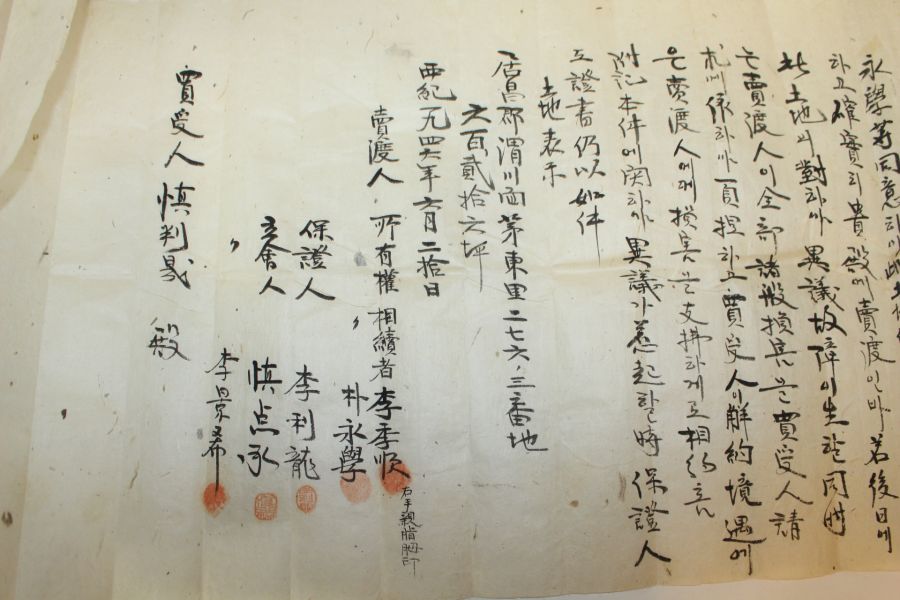 永學等同意하야此土地
하고確實히貴殿에賣渡인바若後日에
此土地의對하야異議故障이生할同時
는賣渡人이全部諸般損害을買受人請
求에依하야負担하고買受人이解約境遇에
은賣渡人에게損害을支拂하게로相約言
附記本件에関하야異議가惹起할時保證人
立證書仍以如件
土地表示
居昌郡渭川面茅東里二七六,三番地
六百貳拾六坪
西紀一九四六年六月二拾日
賣渡人 所有權相續者 李季順
右手親指拇印
〃 朴永學
保證人 李利龍
立會人 慎点承
〃 李景希
買受人 慎判晟 殿